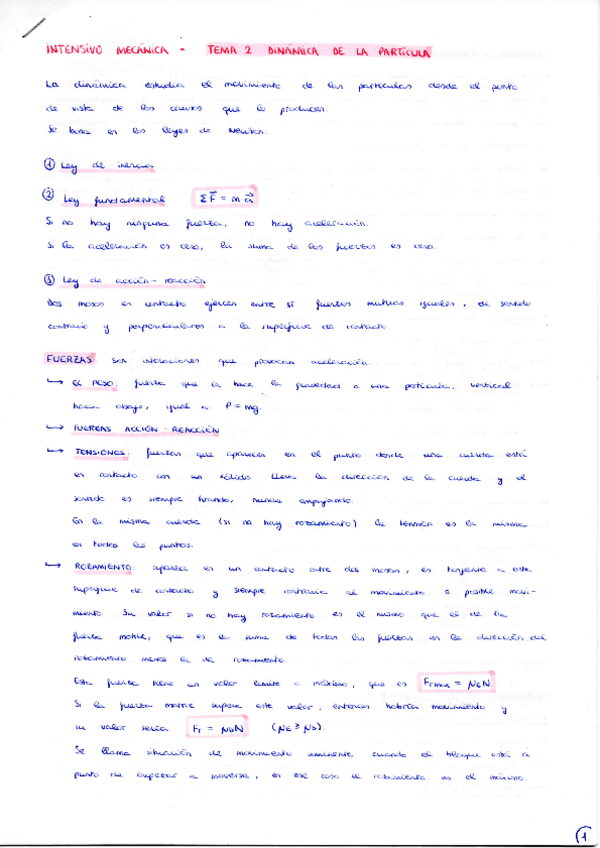 INTENSIVO MECÁNICA - TEMA 2 DINÁMICA DE LA PARTÍCULA
La dinámica estudia el movimiento de las partículas desde el punto
de vista de las causas que lo producen.
Se basa en las leyes de Newton.
① Ley de inercia
② Ley fundamental ΣF⃗ = m a⃗
Si no hay ninguna fuerza, no hay aceleración.
Si la aceleración es cero, la suma de las fuerzas es cero.
③ Ley de acción-reacción
Dos masas en contacto ejercen entre sí fuerzas mutuas iguales, de sentido
contrario y perpendiculares a la superficie de contacto.
FUERZAS son interacciones que provocan aceleración.
→ EL PESO: fuerza que le hace la gravedad a una partícula, vertical
hacia abajo, igual a P=mg.
→ FUERZAS ACCIÓN-REACCIÓN
→ TENSIONES: fuerzas que aparecen en el punto donde una cuerda está
en contacto con un sólido. Lleva la dirección de la cuerda y el
sentido es siempre tirando, nunca empujando.
En la misma cuerda (si no hay rozamiento) la tensión es la misma
en todos los puntos.
→ ROZAMIENTO: aparece en un contacto entre dos masas, es tangente a esta
superficie de contacto y siempre contrario al movimiento o posible movi-
miento. Su valor si no hay rozamiento es el mismo que el de la
fuerza motriz, que es la suma de todas las fuerzas en la dirección del
rozamiento menos la de rozamiento.
Esta fuerza tiene un valor límite o máximo, que es Frmax = μeN.
Si la fuerza motriz supera este valor, entonces habría movimiento y
su valor sería Fr = μDN (μE ≥ μD).
Se llama situación de movimiento inminente cuando el bloque está a
punto de empezar a moverse, en ese caso el rozamiento es el máximo.
1